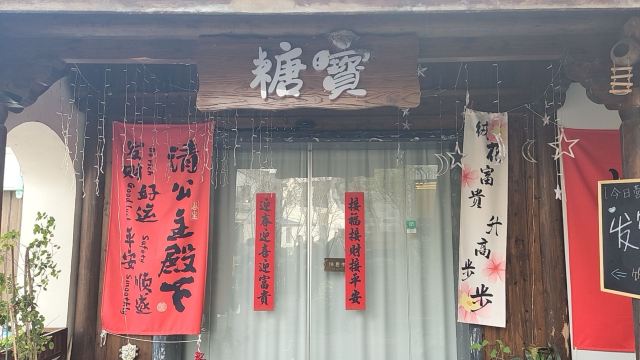 糖寶
请公主殿下
发财
Go rich
好运
Good luck
平安
Safety
顺遂
Smoothly
迎春迎喜迎富貴
接福接财接平安
富贵
升高
步步
今日
发